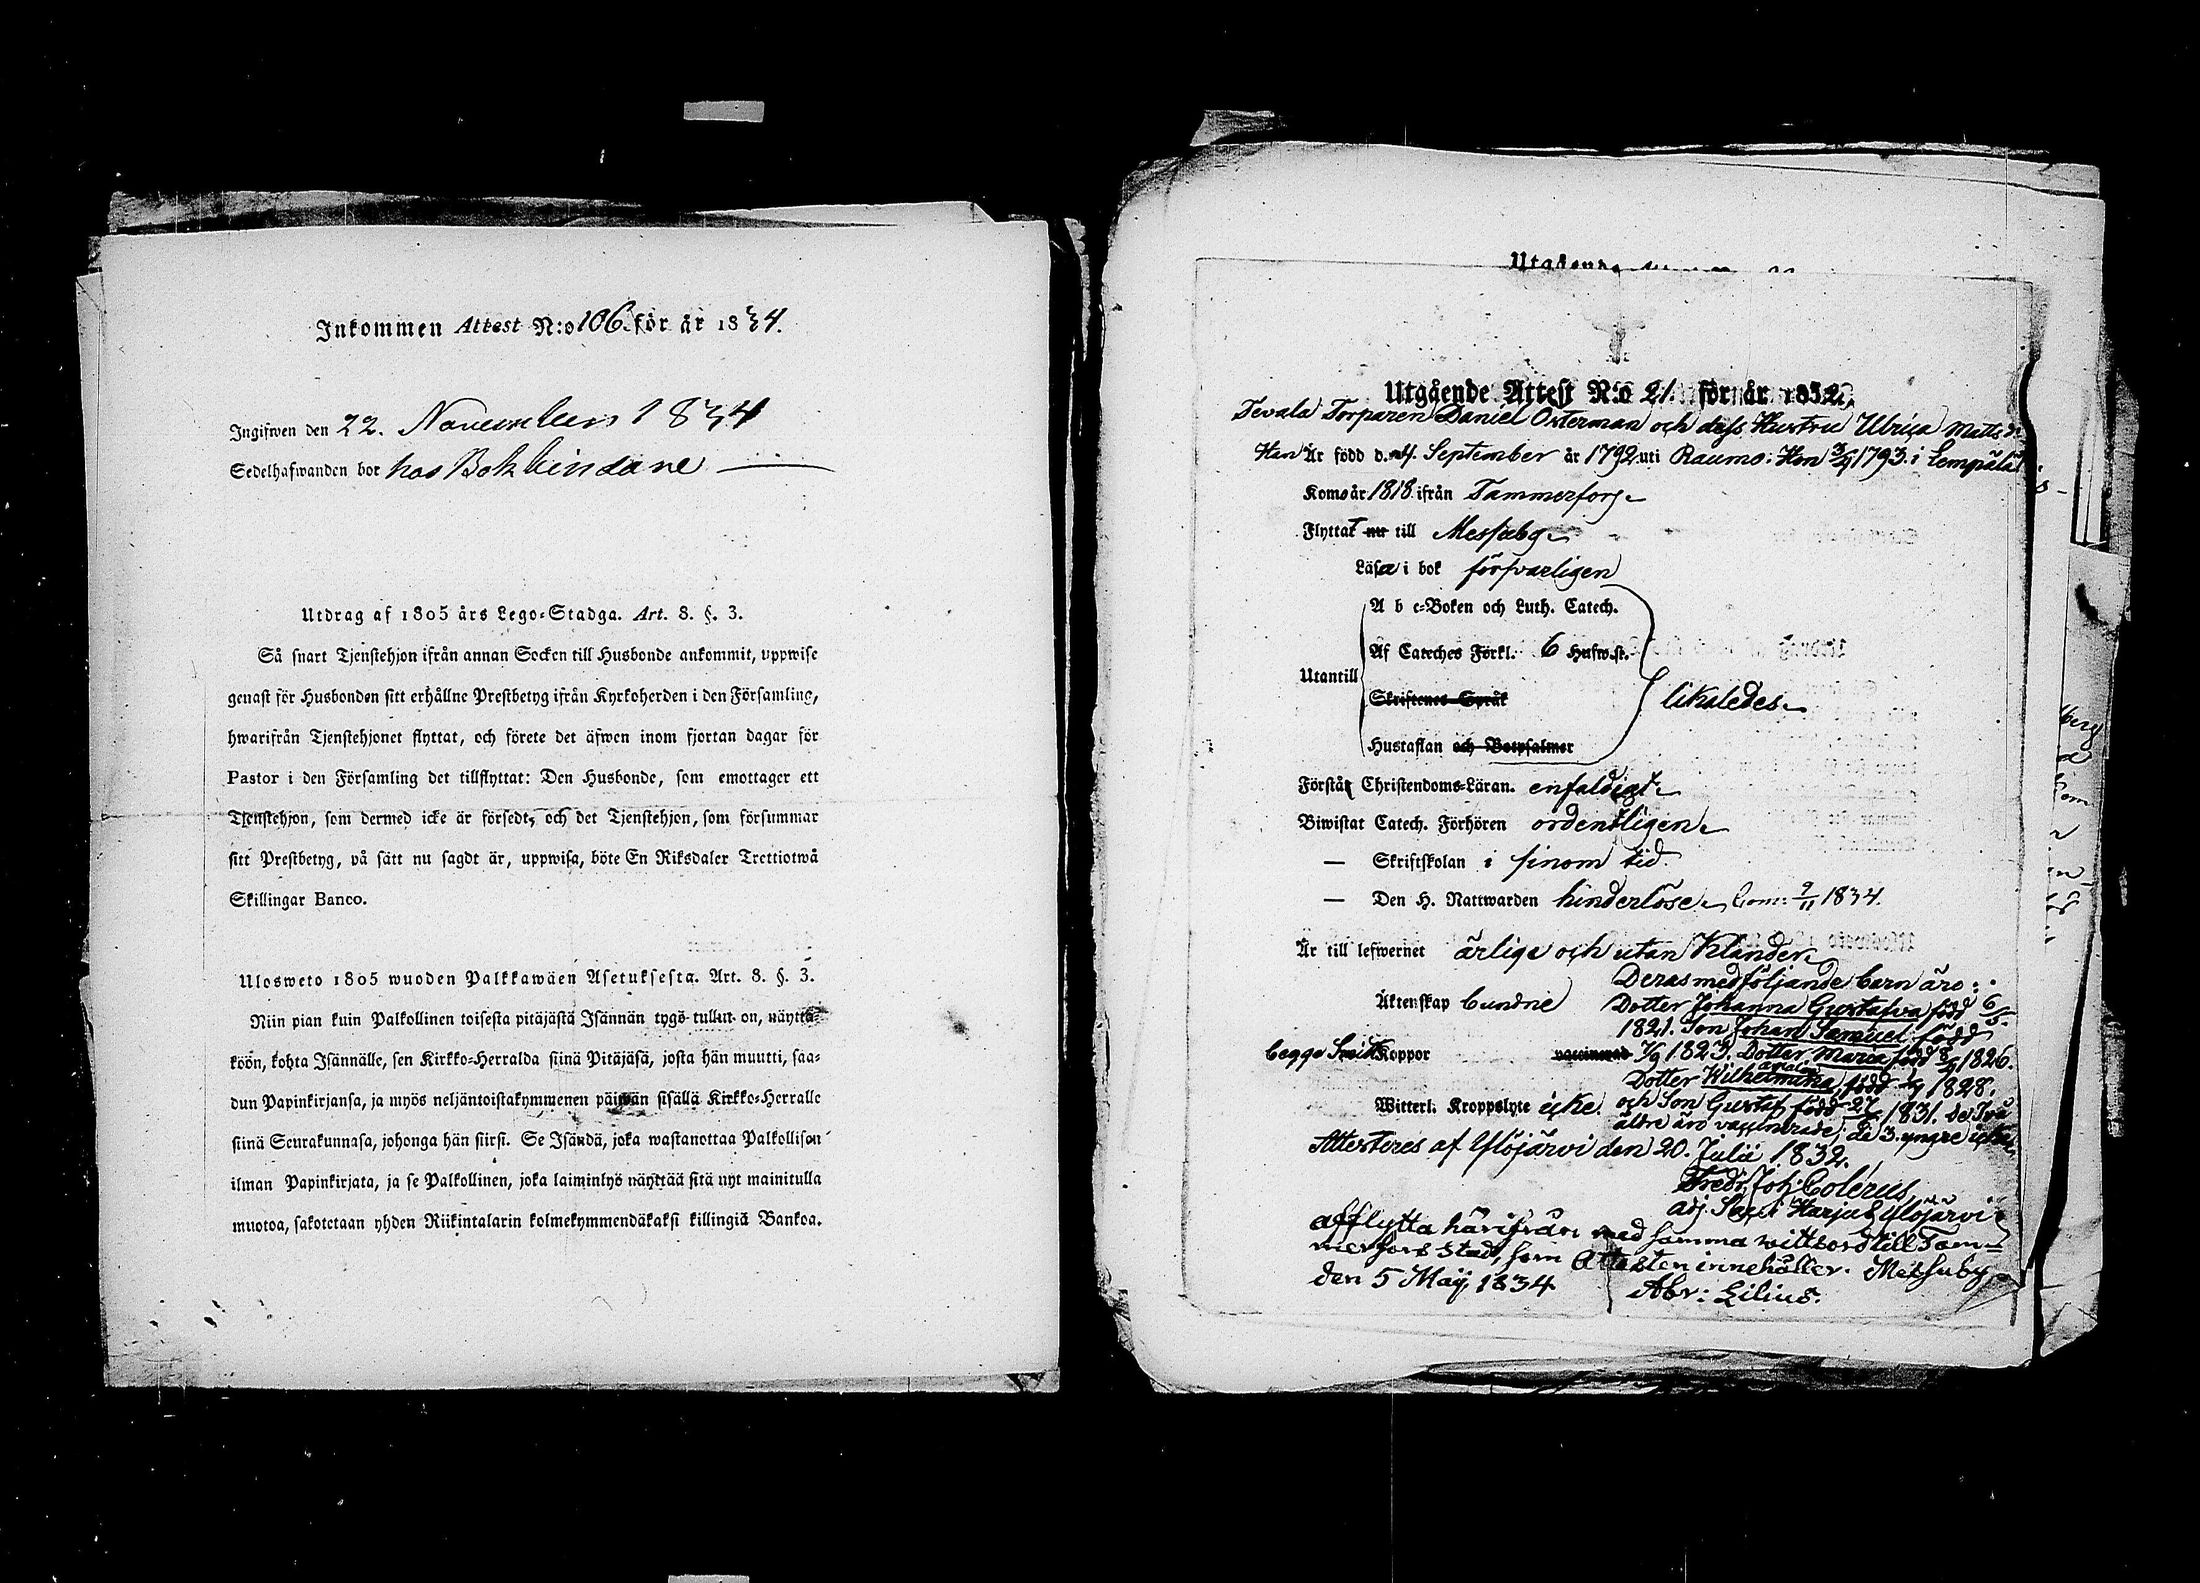 Inkommen Attest N:o 106. för år 1834.
Ingifwen den 22. November 1834
Sedelhafwanden bor hos Bokbindare
Utdrag af 1805 års Lego-Stadga. Art. 8. §. 3.
Så snart Tjenstehjon ifrån annan Socken till Husbonde ankommit, uppwise
genast för Husbonden sitt erhållne Prestbetyg ifrån Kyrkoherden i den Församling,
hwarifrån Tjenstehjonet flyttat, och förete det äfwen inom fjortan dagar för
Pastor i den Församling det tillflyttat: Den Husbonde, som emottager ett
Tjenstehjon, som dermed icke är försedt, och det Tjenstehjon, som försummar
sitt Prestbetyg, på sätt nu sagdt är, uppwisa, böte En Riksdaler Trettiotwå
Skillingar Banco.
Ulosweto 1805 wuoden Palkkawäen Asetuksesta. Art. 8. §. 3.
Niin pian kuin Palkollinen toisesta pitäjästä Isännän tygö tullut on, näyttä-
köön, kohta Isännälle, sen Kirkko-Herralda siinä Pitäjäsä, josta hän muutti, saa-
dun Papinkirjansa, ja myös neljäntoistakymmenen päiwän sisällä Kirkko-Herralle
siinä Seurakunnasa, johonga hän siirsi. Se Isändä, joka wastanottaa Palkollisen
ilman Papinkirjata, ja se Palkollinen, joka laiminlyö näyttää sitä nyt mainitulla
muotoa, sakotetaan yhden Riikintalarin kolmekymmendäkaksi killingiä Bankoa.
Utgående Attest N:o 21. för år 1832.
Tevala Torparen Daniel Österman och dess Hustru Ulrica Mattsdr
Han Är född d. 4. September år 1792 uti Raumo. Hon 3/9 1793. i Lempälä
Kom år 1818 ifrån Tammerfors
Flyttat nu till Messuby
Läsa i bok försvarligen
A b c-Boken och Luth. Catech.
Af Cateches Förkl. 6 Hufwst.
Utantill
Skriftenes Språk
likaledes
Hustaflan och Botpsalmer
Förstå Christendoms-Läran. enfaldigt
Biwistat Catech. Förhören ordentligen
— Skriftskolan i sinom tid.
— Den H. Nattwarden hinderlöse Com: 9/11 1834.
Är till lefwernet ärlige och utan Klander.
Deras medföljande barn äro:
Äktenskap bundne Dotter Johanna Gustafva född 6/5.
1821. Son Johan Samuel född
begge Haft Koppor vaccinerad 7/9 1823. Dotter Maria född 8/9 1826.
Dotter Wilhelmina född 1/9 1828.
Witterl. Kroppslyte icke. och Son Gustaf född 27/ 1831. de Två
äldre äro vaccinerade, de 3. yngre icke
Attesteres af Ylöjärvi den 20. Julii 1832.
Fredr. Joh. Colerus,
adj. Sac. i Harju & Ylöjärvi
afflytta härifrån med samma wittsord till Tam-
merfors Stad, som Attesten innehåller. Messuby
den 5 Maij 1834 Abr: Lilius.